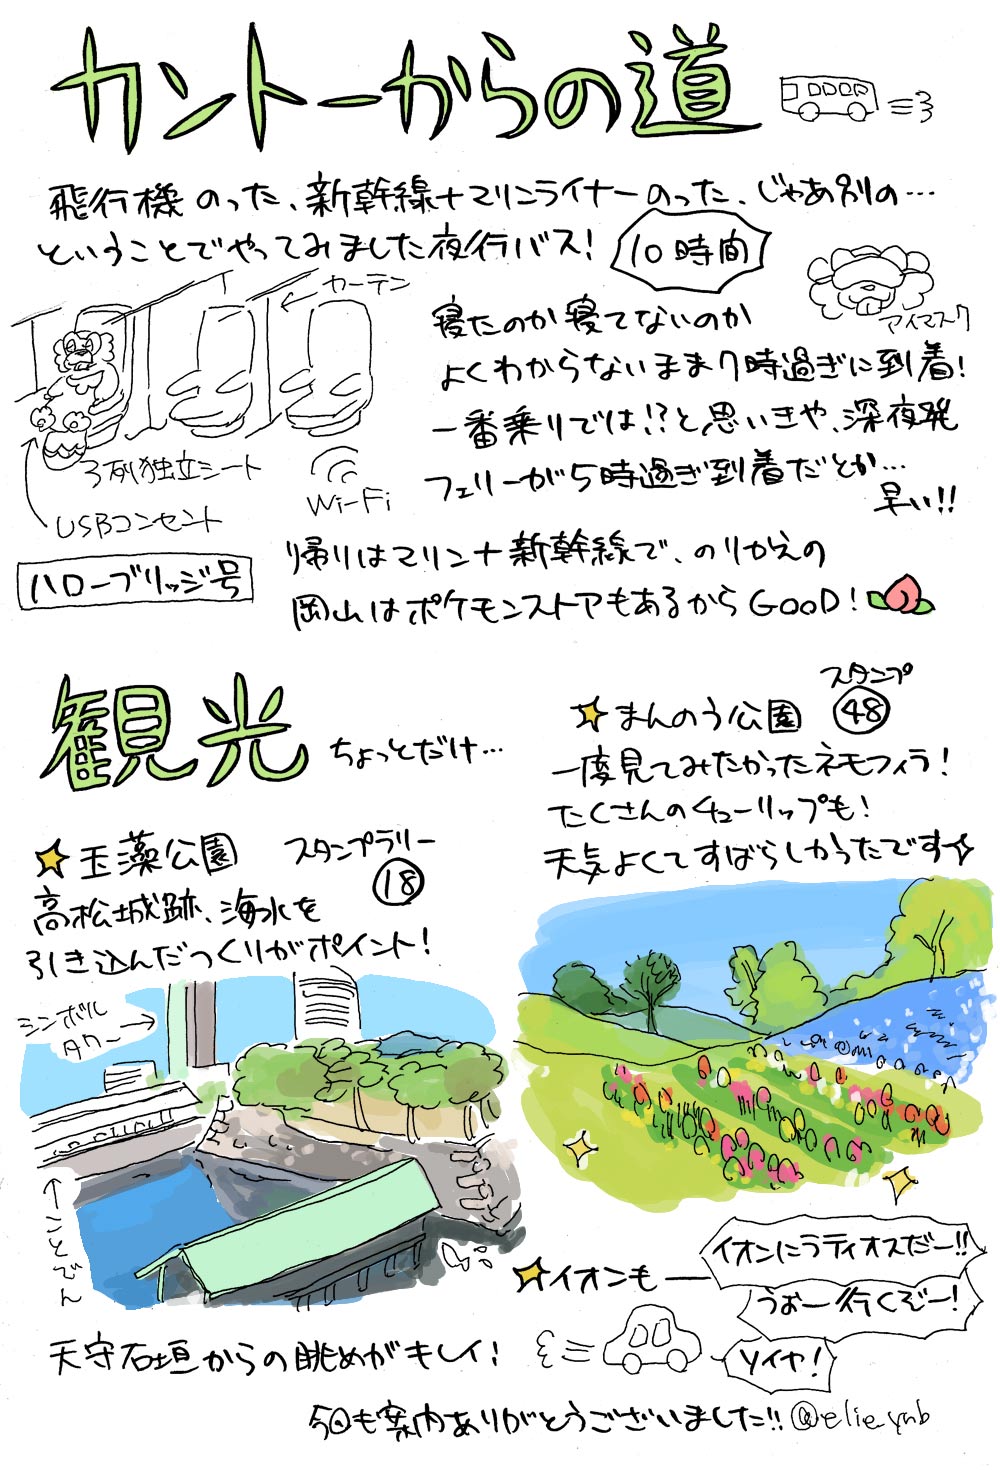 カントーからの道
飛行機のった、新幹線+マリンライナーのった、じゃあ別の…
ということでやってみました夜行バス!
10時間
カーテン
アイマスク
寝たのか寝てないのか
よくわからないまま7時過ぎに到着!
一番乗りでは!?と思いきや、深夜発
フェリーが5時過ぎ到着だとか…
早い!!
3列独立シート
Wi-Fi
USBコンセント
ハローブリッジ号
帰りはマリン+新幹線で、のりかえの
岡山はポケモンストアもあるからGOOD!
観光
ちょっとだけ…
玉藻公園
スタンプラリー
18
高松城跡、海水を
引き込んだつくりがポイント!
シンボル
タワー→
←ことでん
天守石垣からの眺めがキレイ!
まんのう公園
スタンプ
48
一度見てみたかったネモフィラ!
たくさんのチューリップも!
天気よくてすばらしかったです
イオンも
イオンにラティオスだー!!
うおー行くぞー!
ソイヤ!
今回も案内ありがとうございました!!
@elie_ynb